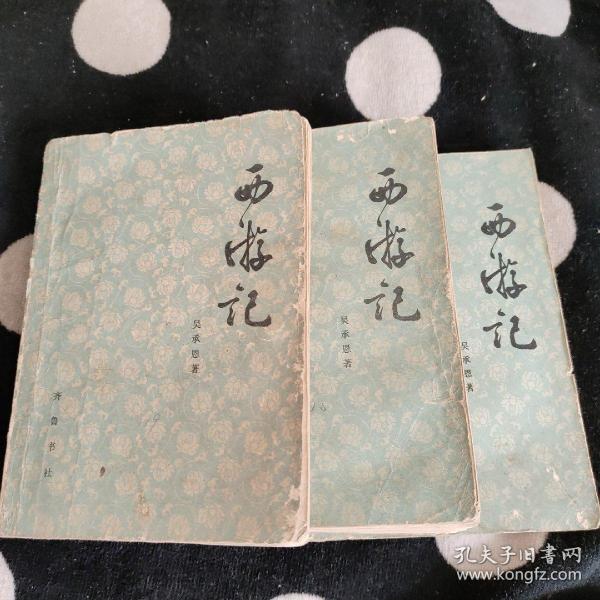 西游记
吴承恩著
齐鲁书社
西游记
吴承恩著
西游记
吴承恩著
孔夫子旧書网
www.kongfz.com